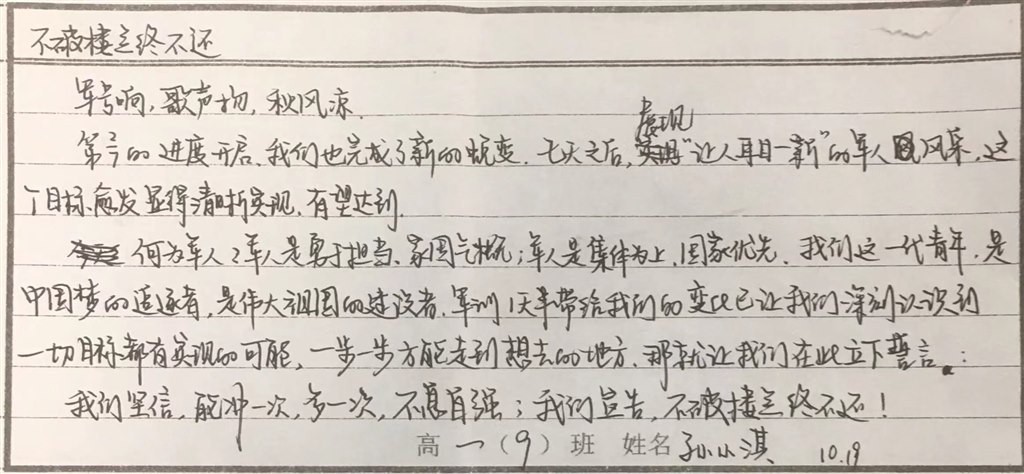 不破楼兰终不还
军号响,歌声扬,秋风凉.
展现
第二个的进度开启,我们也完成了新的蜕变.七天之后,"让人耳目一新"的军人风采,这
个目标愈发显得清晰实现,有望达到.
何为军人?军人是勇于担当、家国气概;军人是集体为上,国家优先.我们这一代青年,是
中国梦的追逐者,是伟大祖国的建设者.军训1天半带给我们的变化已让我们深刻认识到
一切目标都有实现的可能,一步一步方能走到想去的地方.那就让我们在此立下誓言:
我们坚信,能冲一次,多一次,不息自强;我们宣告,不破楼兰终不还!
高一(9)班 姓名 孙小淇 10.19